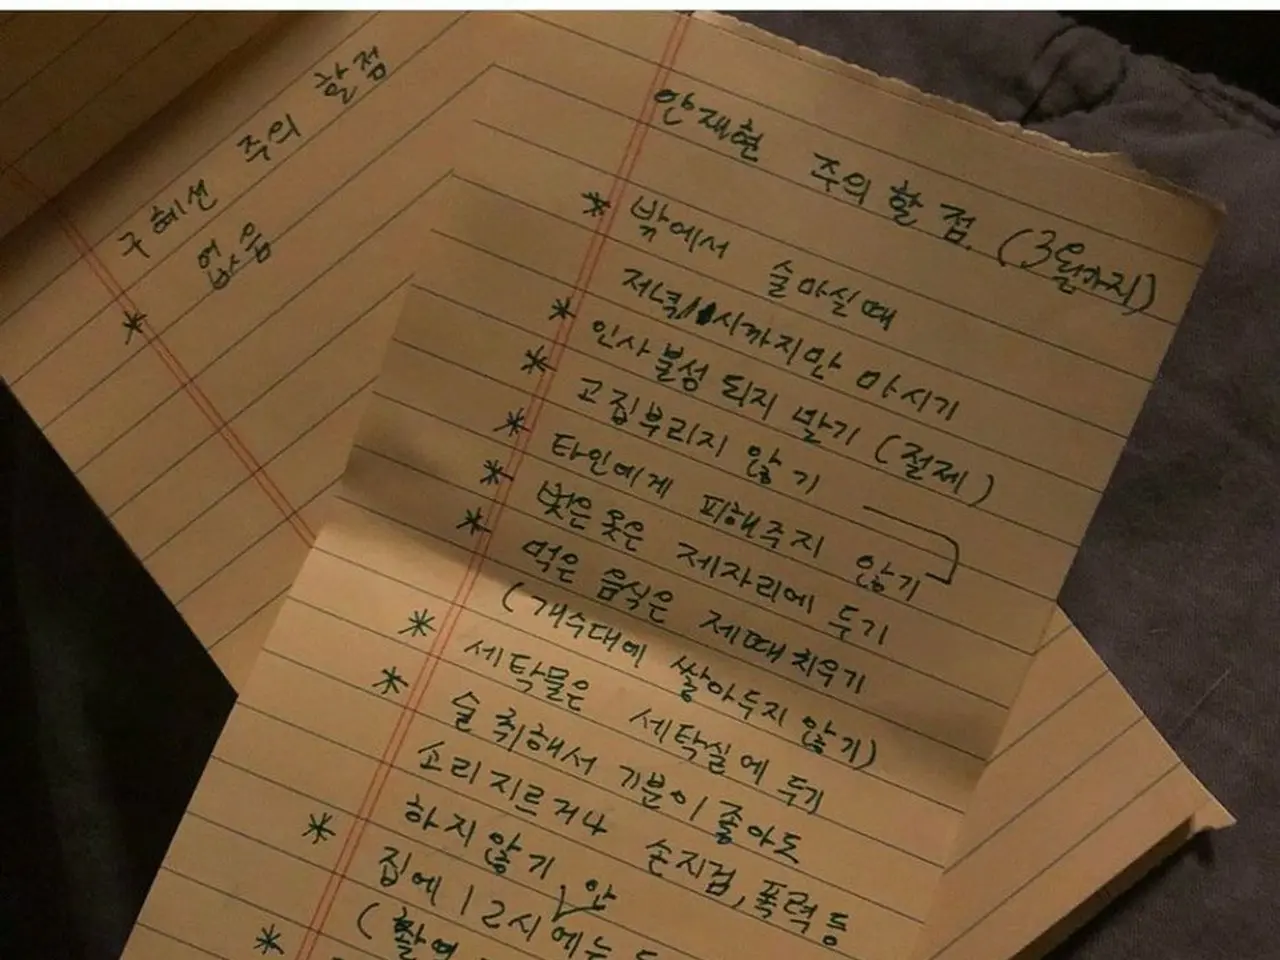 구혜선 주의 할점
없음
*
안재현 주의 할 점. (3월까지)
* 밖에서 술마실때
저녁 11시까지만 마시기
* 인사불성 되지 말기 (절제)
* 고집부리지 않기
* 타인에게 피해주지 않기
* 벗은 옷은 제자리에 두기
* 먹은 음식은 제때 치우기
(개수대에 쌓아두지 않기)
* 세탁물은 세탁실에 두기
* 술 취해서 기분이 좋아도
소리지르거나 손지검, 폭력 등
하지않기
* 집에 12시 안에는
*